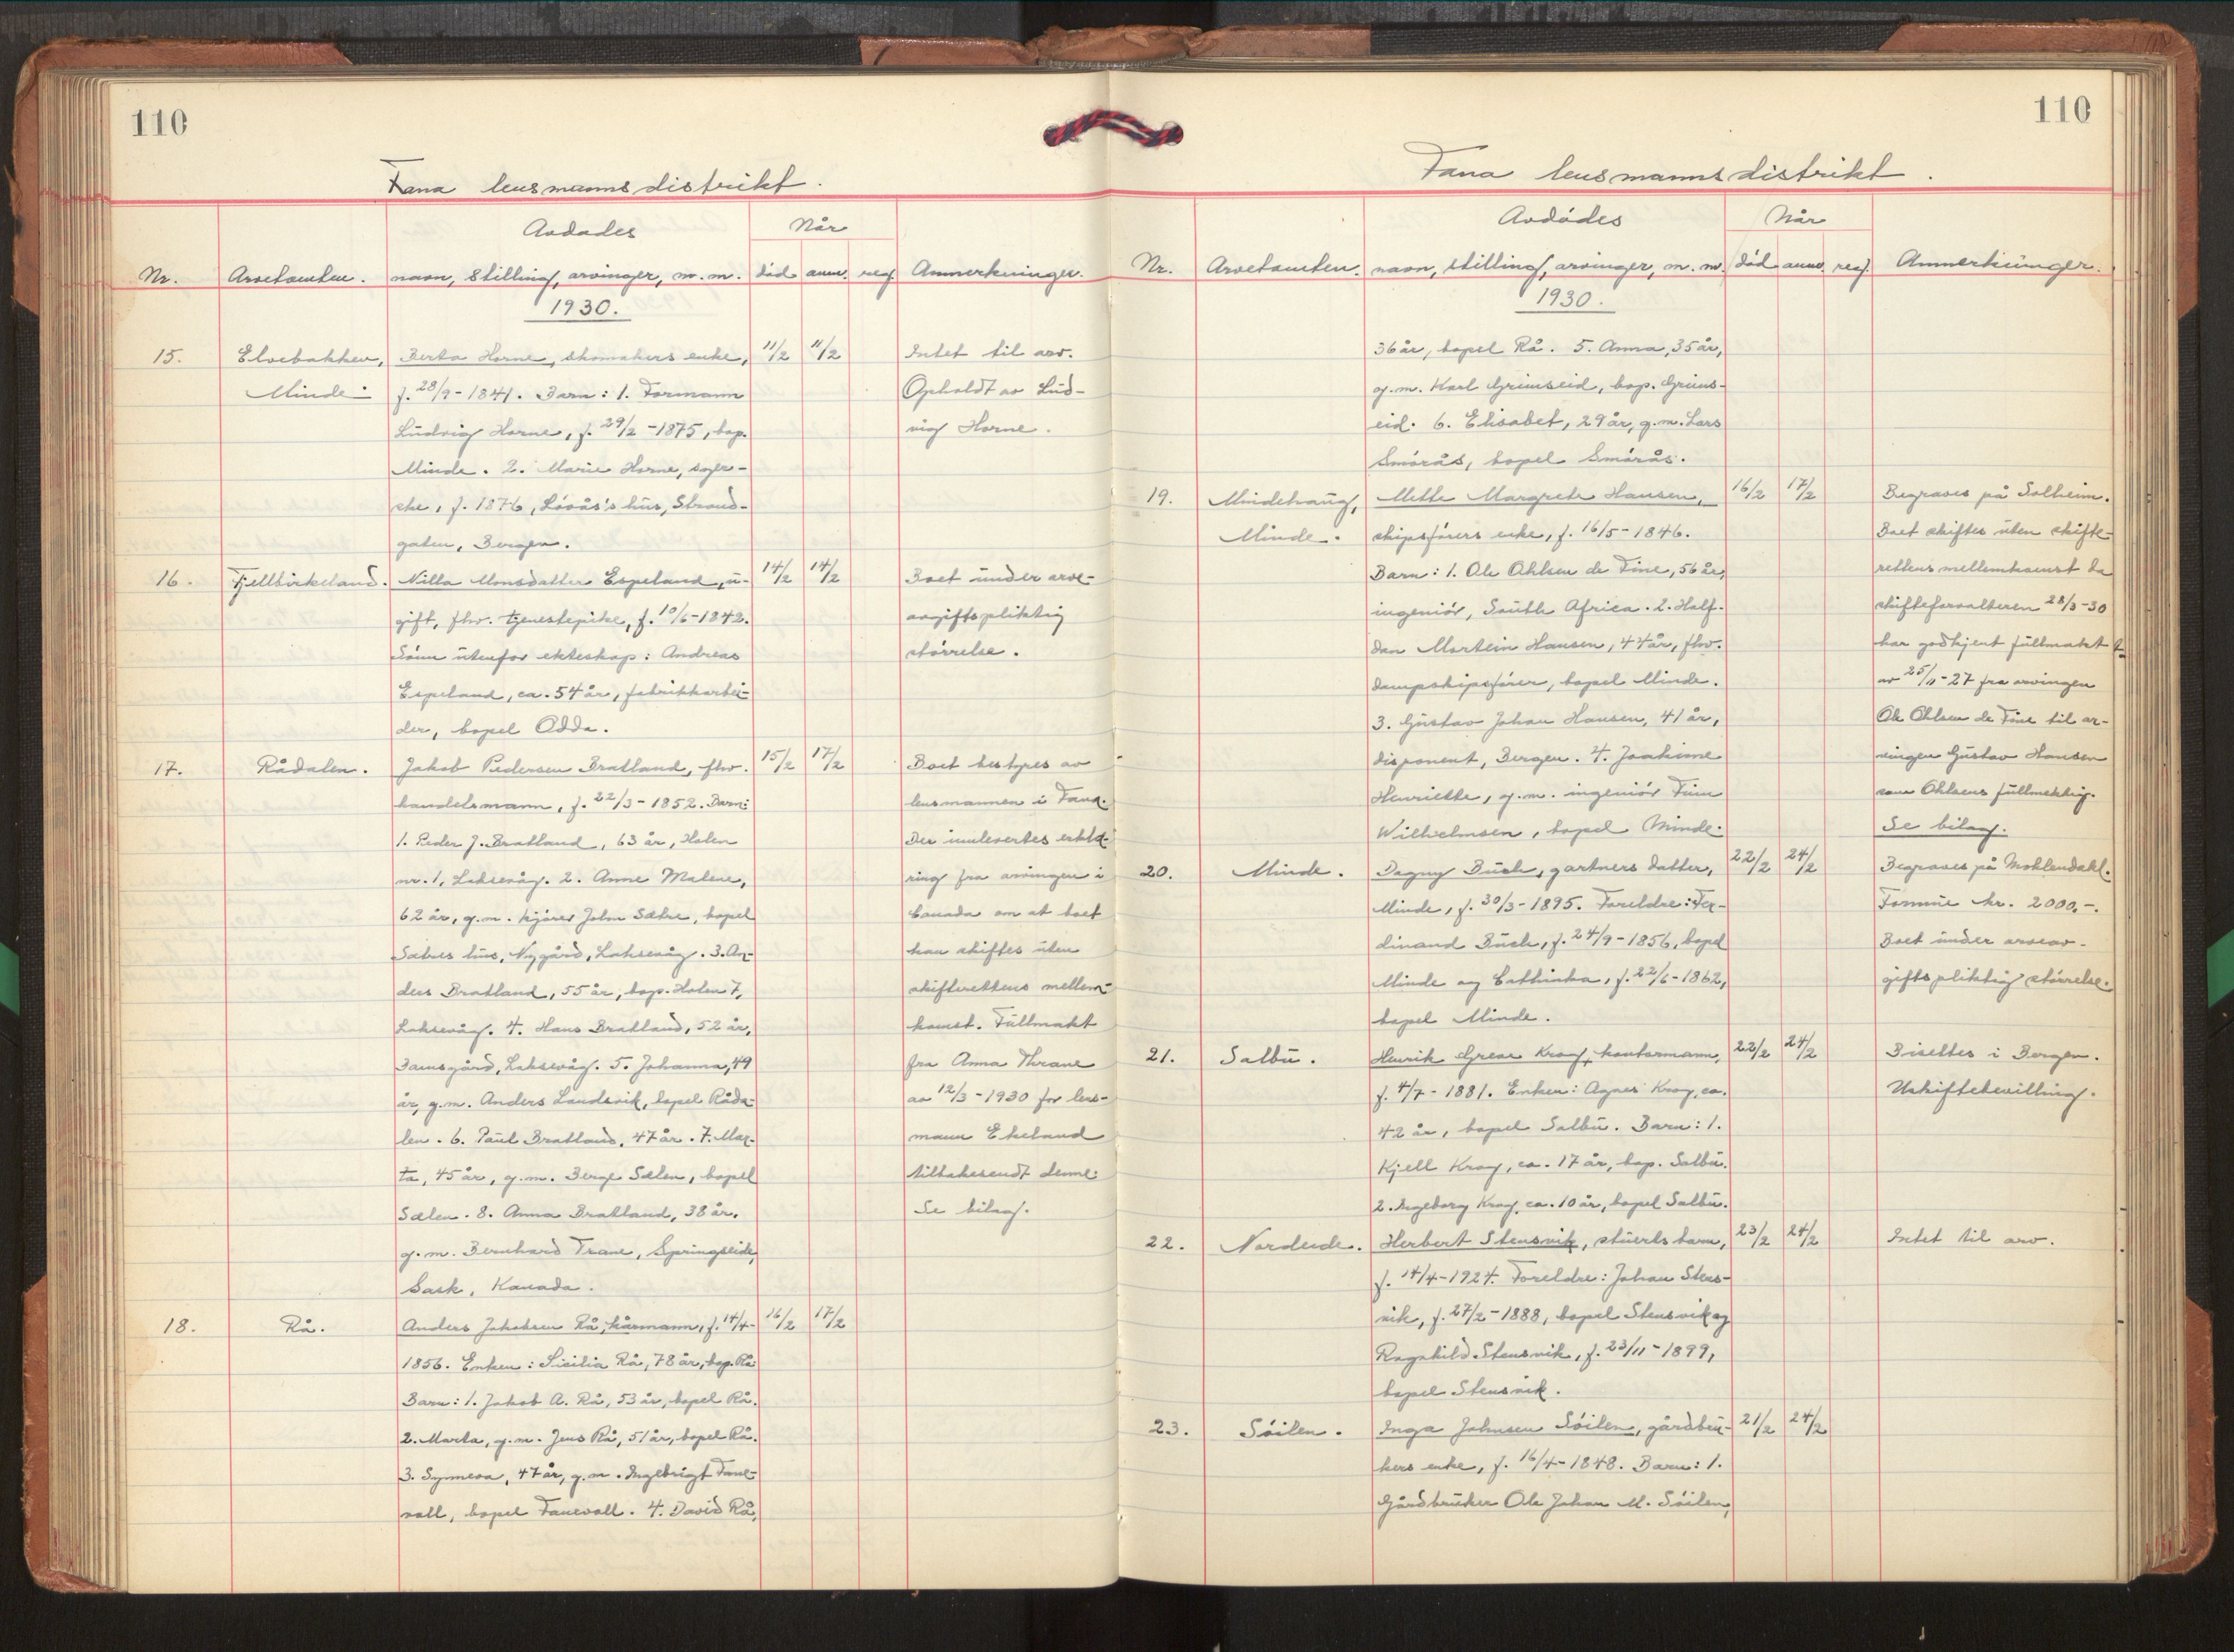 110
Fana lensmannsdistrikt.
Avdødes
Når
Nr. Arvetomten. navn, stilling, arvinger, m. m. død anm. reg. Anmerkninger.
1930.
15. Elvebakken, Berta Horne, skomakers enke, 11/2 11/2 Intet til arv.
Minde. f. 28/9-1841. Barn: 1. Formann Opholdt av Lud-
Ludvig Horne, f. 29/2-1875, bop. vig Horne.
Minde. 2. Marie Horne, syer-
ske, f. 1876, Lövås's hus, Strand-
gaten, Bergen.
16. Fjellbirkeland. Nilla Monsdatter Espeland, u- 14/2 14/2 Boet under arve-
gift, fhv. tjenestepike, f. 10/6-1842. avgiftspliktig
Sönn utenfor ekteskap: Andreas störrelse.
Espeland, ca. 54 år, fabrikkarbei-
der, bopel Odda.
17. Rådalen. Jakob Pedersen Bratland, fhv. 15/2 17/2 Boet bestyres av
handelsmann, f. 22/3-1852. Barn: lensmannen i Fana.
1. Peder J. Bratland, 63 år, Holen Der innlevertes erklæ-
nr. 1, Laksevåg. 2. Anne Malene, ring fra arvingen i
62 år, g.m. kjörer John Sætre, bopel Canada om at boet
Sætres hus, Nygård, Laksevåg. 3. An- kan skiftes uten
ders Bratland, 55 år, bop. Holen 7, skifterettens mellem-
Laksevåg. 4. Hans Bratland, 52 år, komst. Fullmakt
Damsgård, Laksevåg. 5. Johanna, 49 fra Anna Thrane
år, g.m. Anders Landsvik, bopel Råda- av 12/3-1930 for lens-
len. 6. Paul Bratland, 47 år. 7. Mar- mann Ekeland
ta, 45 år, g.m. Berge Sælen, bopel tilbakesendt denne.
Sælen. 8. Anna Bratland, 38 år, Se bilag.
g.m. Bernhard Trane, Springside,
Sask, Kanada.
18. Rå. Anders Jakobsen Rå, kårmann, f. 14/4- 16/2 17/2
1856. Enken: Sicilia Rå, 78 år, bop. Rå.
Barn: 1. Jakob A. Rå, 53 år, bopel Rå.
2. Marta, g.m. Jens Rå, 51 år, bopel Rå.
3. Synneva, 47 år, g.m. Ingebrigt Fane-
voll, bopel Fanevoll. 4. David Rå,
110
Fana lensmannsdistrikt.
Avdödes
Når
Nr. Arvetomten. navn, stilling, arvinger, m. m. död anm. reg. Anmerkninger.
1930.
36 år, bopel Rå. 5. Anna, 35 år,
g.m. Karl Grimseid, bop. Grims-
eid. 6. Elisabet, 29 år, g.m. Lars
Smörås, bopel Smörås.
19. Mindehaug, Mette Margrete Hansen, 16/2 17/2 Begraves på Solheim.
Minde. skipsförers enke, f. 16/5-1846. Boet skiftes uten skifte-
Barn: 1. Ole Ohlsen de Fine, 56 år, rettens mellemkomst da
ingeniör, South Africa. 2. Half- skifteforvalteren 28/3-30
dan Mortein Hansen, 44 år, fhv. har godkjent fullmakt
dampskipsförer, bopel Minde. av 25/11-27 fra arvingen
3. Gustav Johan Hansen, 41 år, Ole Ohlsen de Fine til ar-
disponent, Bergen. 4. Joakime vingen Gustav Hansen
Henriette, g.m. ingeniör Finn som Ohlsens fullmektig.
Wilhelmsen, bopel Minde. Se bilag.
20. Minde. Dagny Buch, gartners datter, 22/2 24/2 Begraves på Mohlendahl.
Minde, f. 30/3-1895. Foreldre: Fer- Formue kr. 2000,-.
dinand Buch, f. 24/9-1856, bopel Boet under arveav-
Minde og Cathinka, f. 22/6-1862, giftspliktig störrelse.
bopel Minde.
21. Salbu. Henrik Greve Krag, kontormann, 22/2 24/2 Bisettes i Bergen.
f. 4/7-1881. Enken: Agnes Krag, ca. Uskiftebevilling.
42 år, bopel Salbu. Barn: 1.
Kjell Krag, ca. 17 år, bop. Salbu.
2. Ingeborg Krag, ca. 10 år, bopel Salbu.
22. Nordeide. Herbert Stensvik, stuerts barn, 23/2 24/2 Intet til arv.
f. 14/4-1924. Foreldre: Johan Stens-
vik, f. 27/2-1888, bopel Stensvik og
Ragnhild Stensvik, f. 23/11-1899,
bopel Stensvik.
23. Söilen. Inga Johnsen Söilen, gårdbru- 21/2 24/2
kers enke, f. 16/4-1848. Barn: 1.
Gårdbruker Ole Johan M. Söilen,